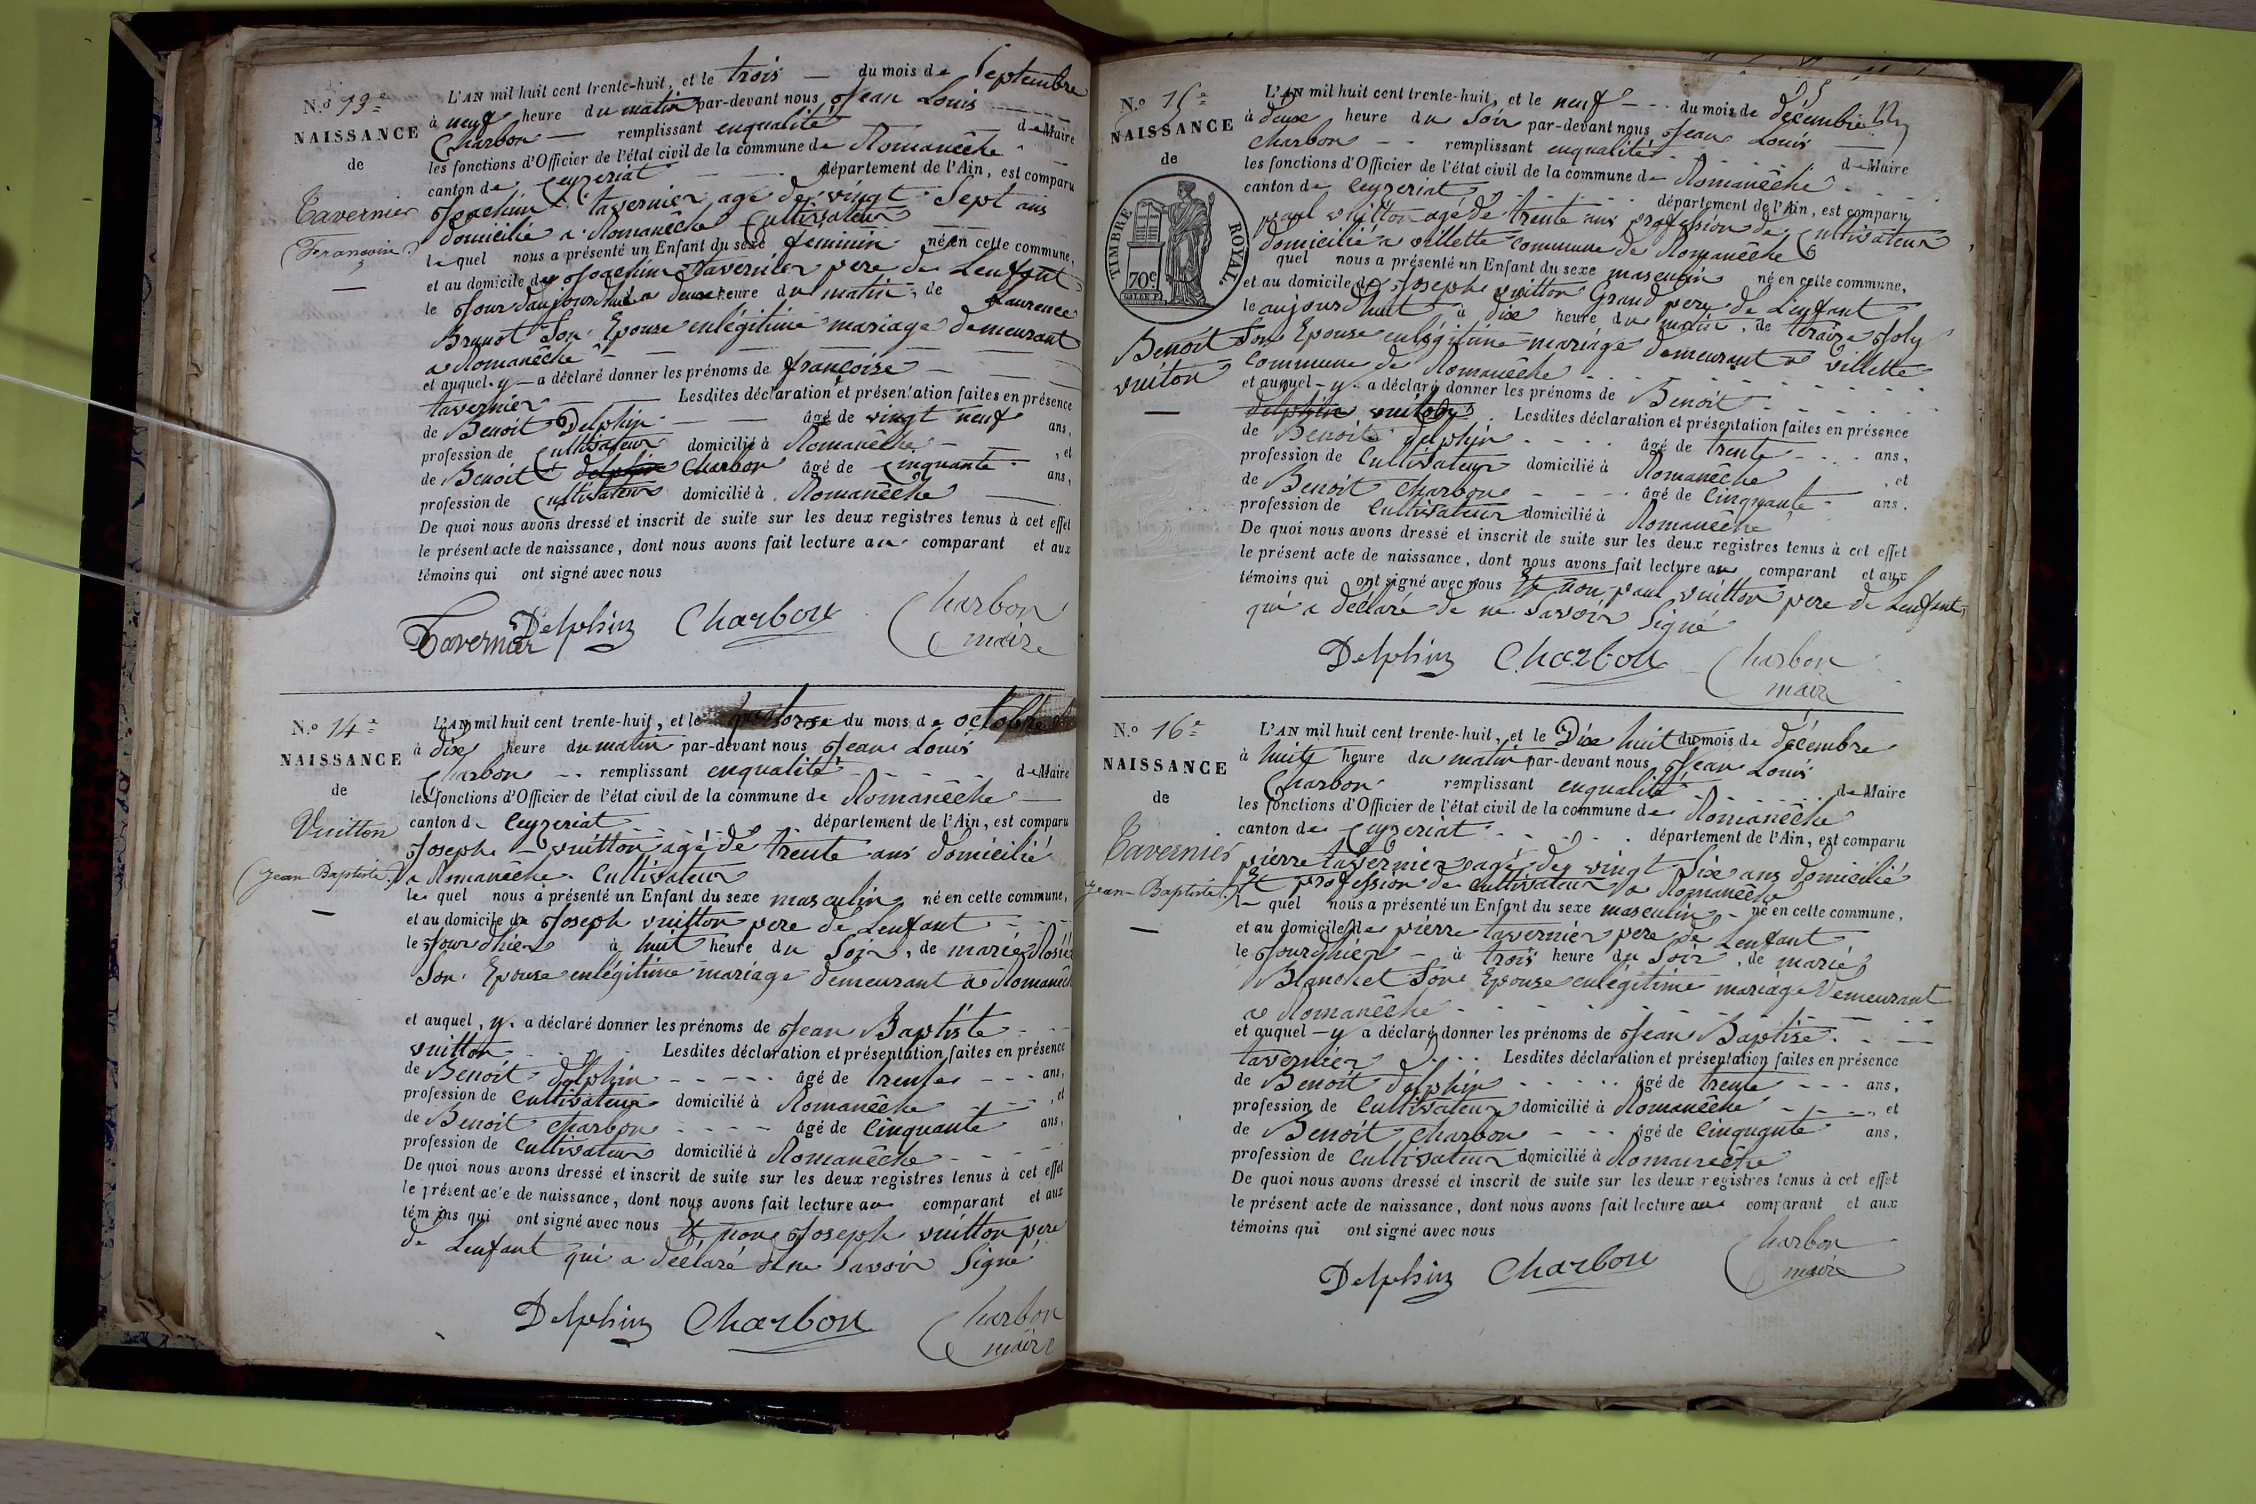 N.o 13e
NAISSANCE
de
Tavernier
(Françoise)
L'AN mil huit cent trente-huit, et le trois du mois de Septembre
à neuf heure du matin par-devant nous Jean Louis
Charbon remplissant enqualité de Maire
les fonctions d'Officier de l'état civil de la commune de Romanêche
canton de Ceyzeriat département de l'Ain, est comparu
Joachim tavernier agé de vingt Sept ans
domicilié a Romanêche Cultivateur
lequel nous a présenté un Enfant du sexe feminin né en cette commune,
et au domicile de Joachim Tavernier pere de Lenfant
le Jour daujourdhui a deux heure du matin, de Laurence
Brunot Son Epouse enlégitime mariage demeurant
a Romanêche
et auquel y a déclaré donner les prénoms de françoise
tavernier Lesdites déclaration et présentation faites en présence
de Benoit Delphin âgé de vingt neuf ans,
profession de Cultivateur domicilié à Romanêche, et
de Benoit delphin Charbon âgé de Cinquante ans,
profession de Cultivateur domicilié à Romanêche
De quoi nous avons dressé et inscrit de suite sur les deux registres tenus à cet effet
le présent acte de naissance, dont nous avons fait lecture au comparant et aux
témoins qui ont signé avec nous
Tavernier Delphin Charbon Charbon
maire
N.o 14e
NAISSANCE
de
Vuitton
(Jean Baptiste)
L'AN mil huit cent trente-huit, et le quatorze du mois de octobre
à dix heure du matin par-devant nous Jean Louis
Charbon remplissant enqualité de Maire
les fonctions d'Officier de l'état civil de la commune de Romanêche
canton de Ceyzeriat département de l'Ain, est comparu
Joseph vuitton agé de trente ans domicilié
a Romanêche Cultivateur
lequel nous a présenté un Enfant du sexe masculin né en cette commune,
et au domicile de Joseph vuitton pere de Lenfant
le Jour dhier à huit heure du Soir, de marie
Son Epouse enlégitime mariage demeurant a Romanêche
et auquel, y a déclaré donner les prénoms de Jean Baptiste
vuitton Lesdites déclaration et présentation faites en présence
de Benoit delphin âgé de trente ans,
profession de Cultivateur domicilié à Romanêche, et
de Benoit charbon âgé de Cinquante ans,
profession de Cultivateur domicilié à Romanêche
De quoi nous avons dressé et inscrit de suite sur les deux registres tenus à cet effet
le présent acte de naissance, dont nous avons fait lecture au comparant et aux
témoins qui ont signé avec nous Et non Joseph vuitton pere
de Lenfant qui a déclaré de ne Savoir Signé
Delphin Charbon Charbon
maire
N.o 15e
NAISSANCE
de
TIMBRE ROYAL
70c
Benoit
vuiton
L'AN mil huit cent trente-huit, et le neuf du mois de décembre
à deux heure du Soir par-devant nous Jean Louis
Charbon remplissant enqualité de Maire
les fonctions d'Officier de l'état civil de la commune de Romanêche
canton de Ceyzeriat département de l'Ain, est comparu
paul vuitton agé de trente ans profession de Cultivateur
domicilié a villette commune de Romanêche
quel nous a présenté un Enfant du sexe masculin né en cette commune,
et au domicile de Joseph vuitton Grand pere de Lenfant
le aujourdhuit à dix heure du matin, de Joly
Son Epouse enlégitime mariage demeurant a villette
Commune de Romanêche
et auquel y a déclaré donner les prénoms de Benoit
delphin vuiton Lesdites déclaration et présentation faites en présence
de Benoit delphin âgé de trente ans,
profession de Cultivateur domicilié à Romanêche, et
de Benoit Charbon âgé de Cinquante ans.
profession de Cultivateur domicilié à Romanêche
De quoi nous avons dressé et inscrit de suite sur les deux registres tenus à cet effet
le présent acte de naissance, dont nous avons fait lecture au comparant et aux
témoins qui ont signé avec nous Et non paul vuitton pere de Lenfant,
qui a déclaré de ne Savoir Signé
Delphin Charbon Charbon
maire
N.o 16e
NAISSANCE
de
Tavernier
Jean-Baptiste
L'AN mil huit cent trente-huit, et le Dix huit du mois de décembre
à huit heure du matin par-devant nous Jean Louis
Charbon remplissant enqualité de Maire
les fonctions d'Officier de l'état civil de la commune de Romanêche
canton de Ceyzeriat département de l'Ain, est comparu
pierre tavernier agé de vingt Six ans domicilié
Et profession de Cultivateur a Romanêche
le quel nous a présenté un Enfant du sexe masculin né en cette commune,
et au domicile de pierre tavernier pere de Lenfant
le Jour dhier à trois heure du Soir, de marie
Blanchet Son Epouse enlégitime mariage demeurant
a Romanêche
et auquel y a déclaré donner les prénoms de Jean Baptise
tavernier Lesdites déclaration et présentation faites en présence
de Benoit delphin âgé de trente ans,
profession de Cultivateur domicilié à Romanêche, et
de Benoit Charbon âgé de Cinquante ans,
profession de Cultivateur domicilié à Romanêche
De quoi nous avons dressé et inscrit de suite sur les deux registres tenus à cet effet
le présent acte de naissance, dont nous avons fait lecture au comparant et aux
témoins qui ont signé avec nous
Delphin Charbon Charbon
maire